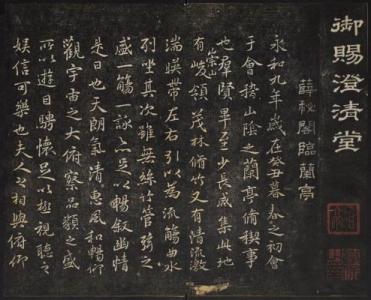 御賜澄清堂
薛稷閣臨蘭亭
永和九年歲在癸丑暮春之初會
于會稽山陰之蘭亭脩稧事
也群賢畢至少長咸集此地
有崇山峻領茂林脩竹又有清流激
湍映帶左右引以為流觴曲水
列坐其次雖無絲竹管弦之
盛一觴一詠亦足以暢敘幽情
是日也天朗氣清惠風和暢仰
觀宇宙之大俯察品類之盛
所以遊目騁懷足以極視聽之
娛信可樂也夫人之相與俯仰